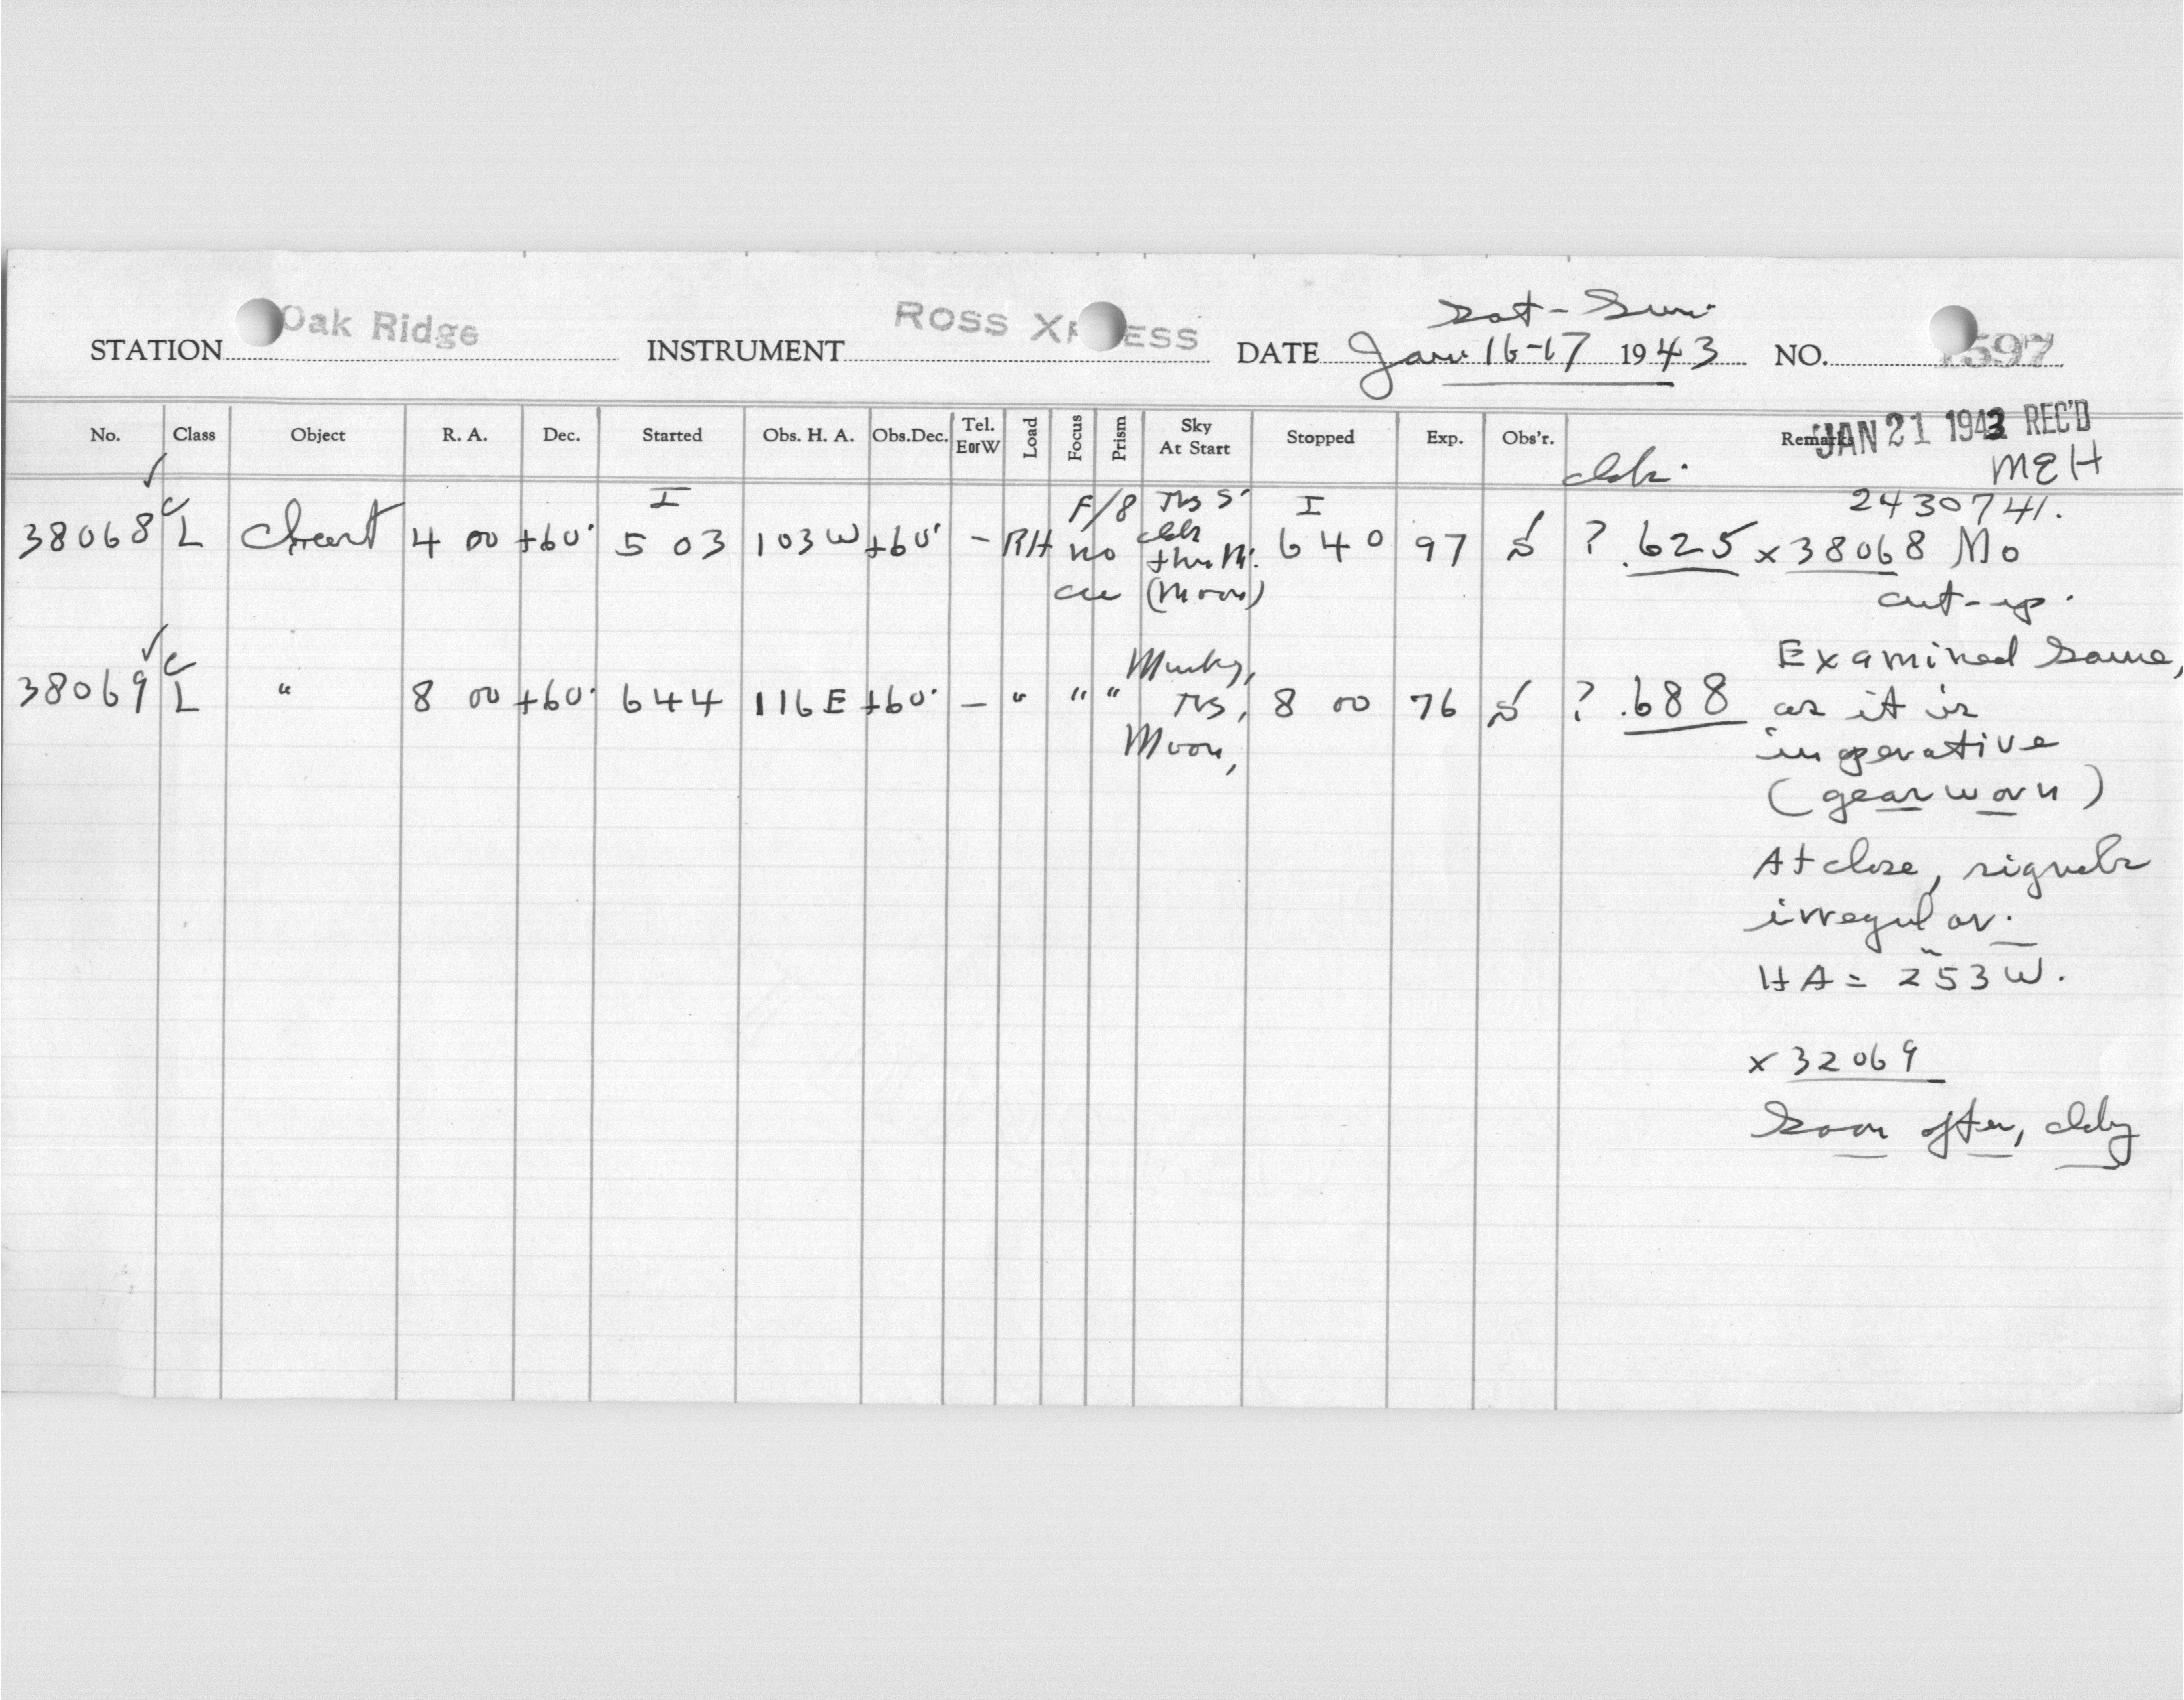 Sat-Sun.
STATION Oak Ridge INSTRUMENT ROSS XPRESS DATE Jan 16-17 1943 NO. 1597
No. Class Object R. A. Dec. Started Obs. H. A. Obs.Dec. Tel. EorW Load Focus Prism Sky At Start Stopped Exp. Obs'r. Remarks
JAN 21 1943 REC'D
MEH
2430741.
38068 CL Chart 4 00 +60° I 5 03 103W +60° - RH F/8 no I 6 40 97 S ? .625 x 38068 Mo
(Moon) cut-up.
38069 CL " 8 00 +60° 6 44 116E +60° - " " " Murky, Moon, 8 00 76 S ? .688
Examined same,
as it is
inoperative
(gear worn)
At close, signals
irregular.
HA = 253W.
x 32069
Soon after, cldy